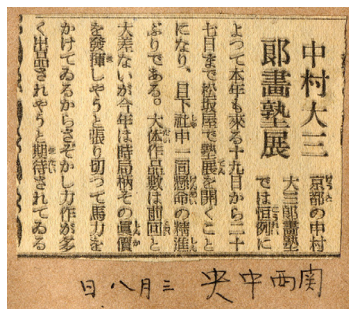 中村大三
郎畫塾展
京都の中村
大三郎畫塾
では恒例に
よつて本年も來る十九日から二十
七日まで松坂屋で塾展を開くこと
になり、目下社中一同懸命の精進
ぶりである。大体作品數は前回と
大差ないが今年は時局柄その眞價
を發揮しやうと張り切つて馬力を
かけてゐるからさぞかし力作が多
く出品されやうと期待されてゐる
関西中央 三月八日